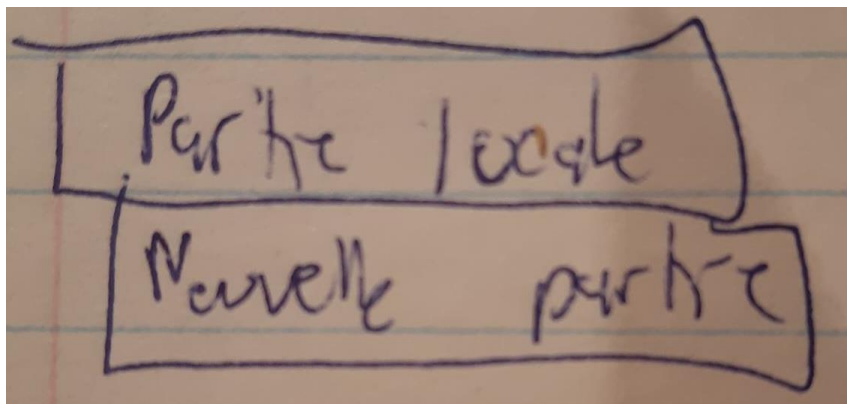 Partie locale
Nouvelle partie